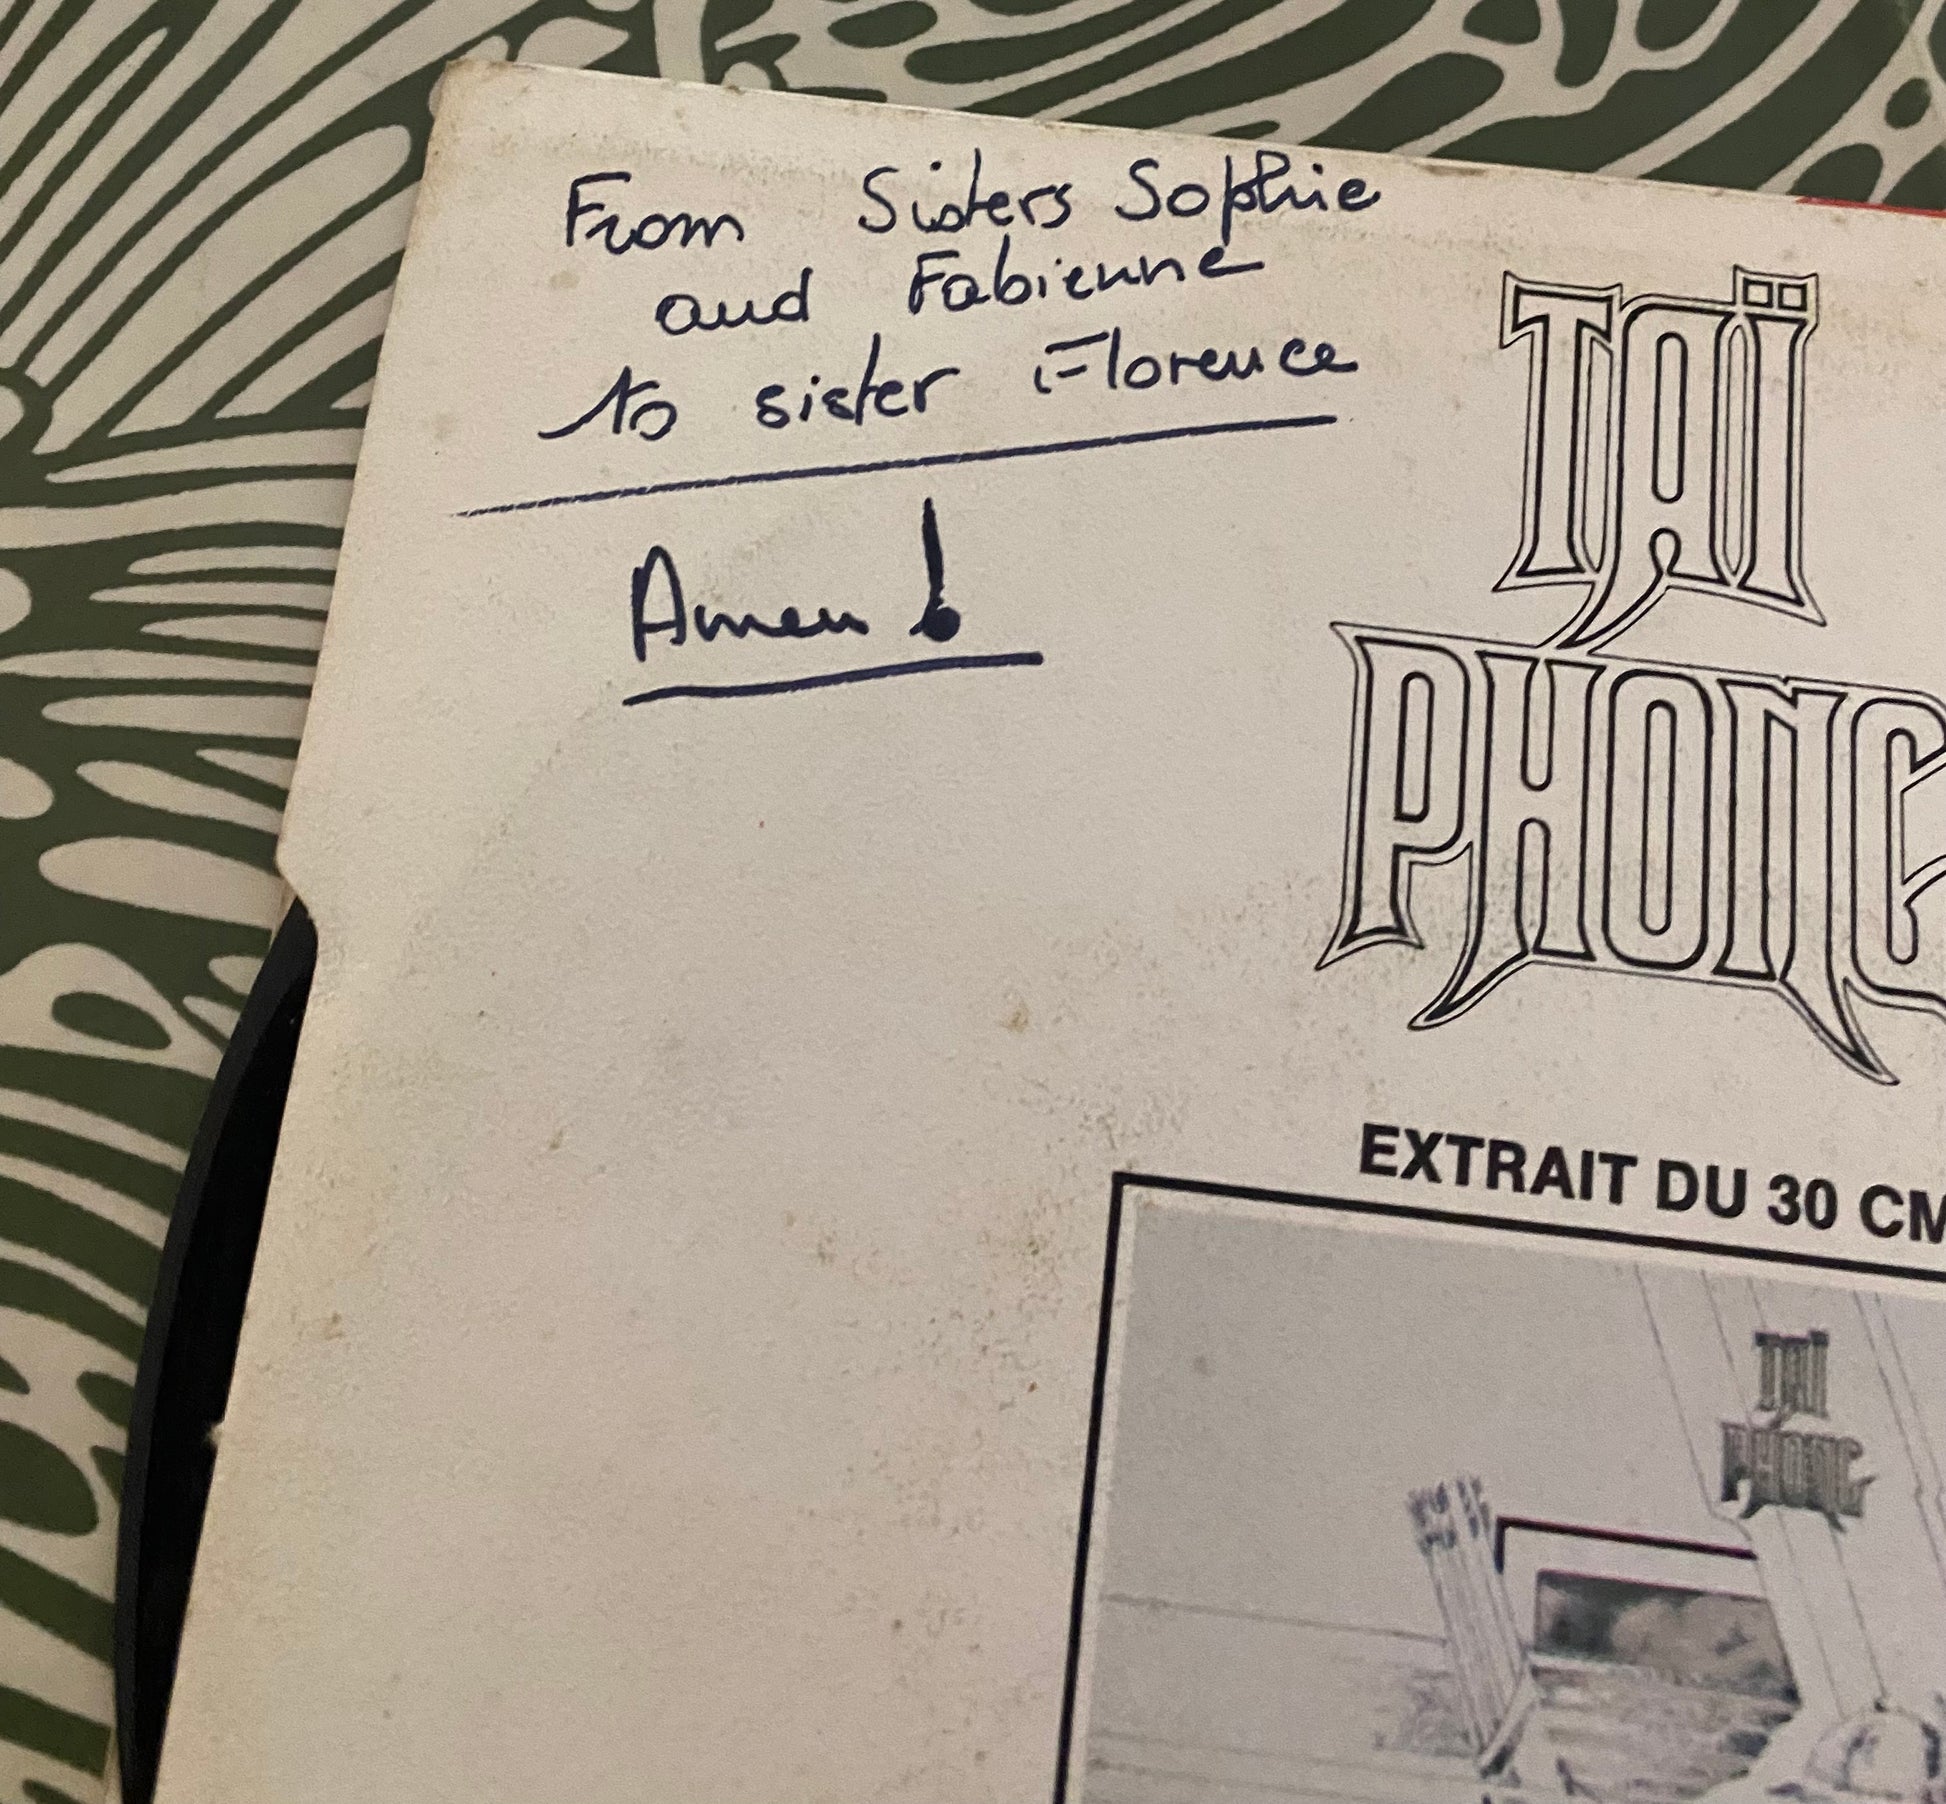 From Sisters Sophie
and Fabienne
to sister Florence
Amen!
TAÏ
PHONG
EXTRAIT DU 30 CM
TAÏ
PHONG